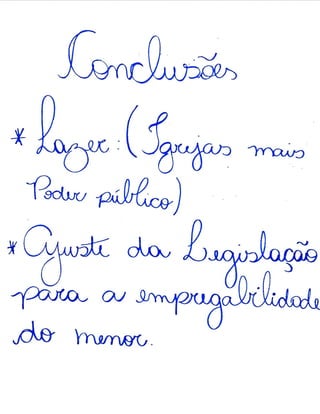 Conclusões
* Lazer: (Igrejas mais
Poder público)
* Ajuste da Legislação
para a empregabilidade
do menor.